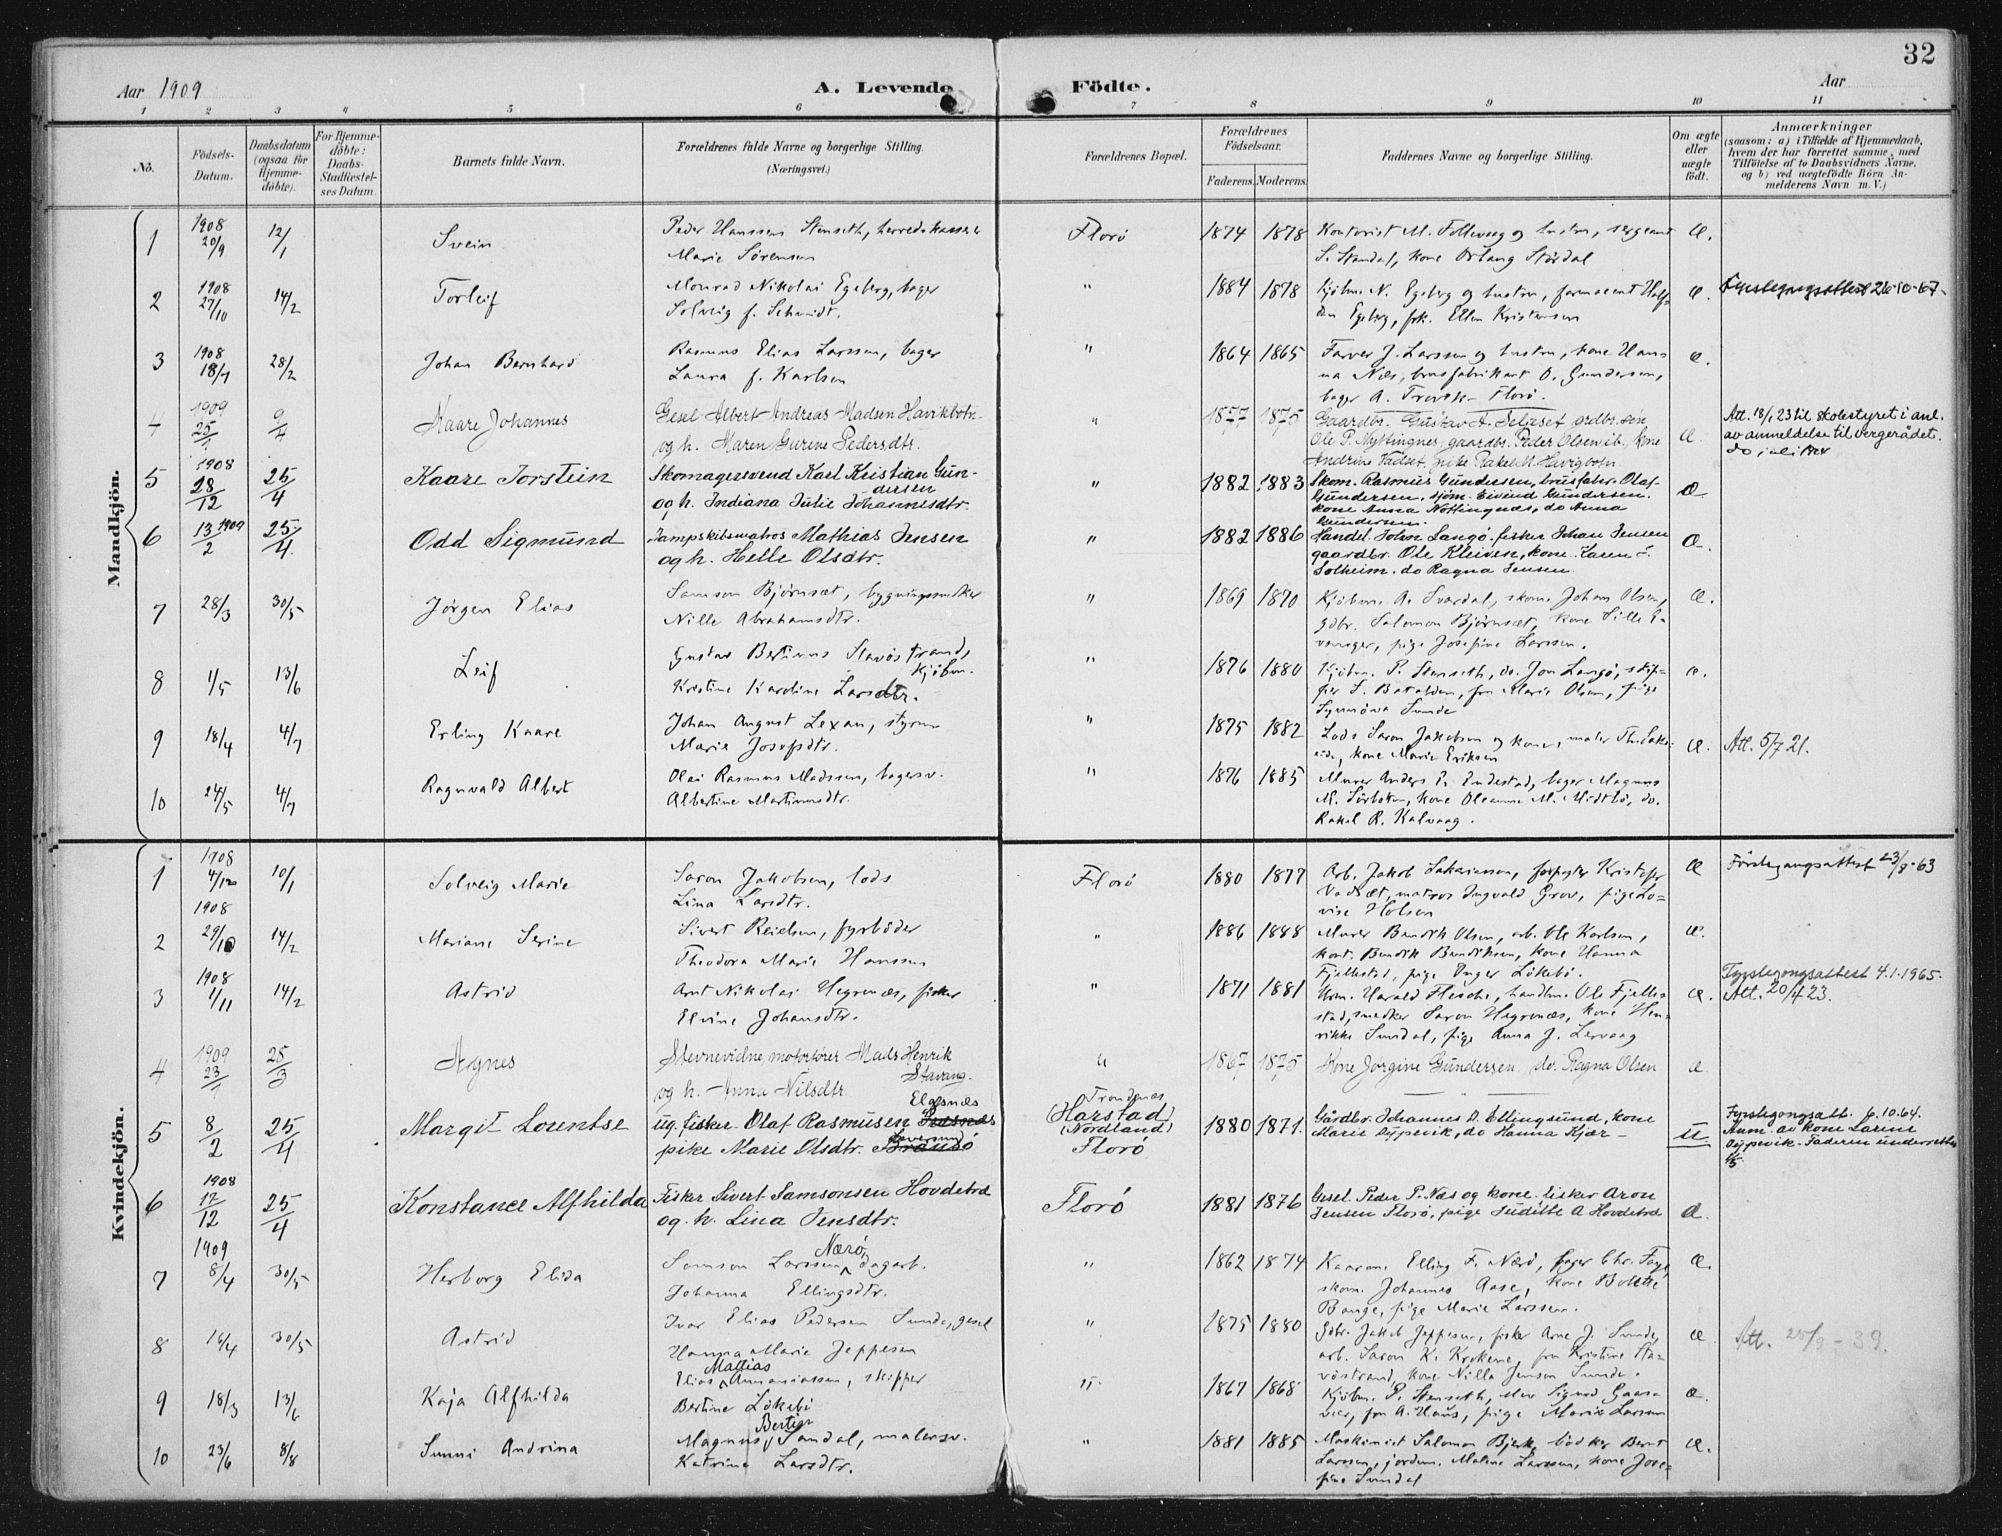 32
Aar 1909
A. Levende Födte.
Aar
1 2 3 4 5 6 7 8 9 10 11
No.
Födsels-Datum.
Daabsdatum (ogsaa for Hjemmedöbte).
For Hjemmedöbte: Daabs-Stadfæstelses Datum.
Barnets fulde Navn.
Forældrenes fulde Navne og borgerlige Stilling. (Næringsvei.)
Forældrenes Bopæl.
Forældrenes Födselsaar.
Faderens. Moderens.
Faddernes Navne og borgerlige Stilling.
Om ægte eller uægte födt.
Anmærkninger
(saasom: a) i Tilfælde af Hjemmedaab, hvem der har forrettet samme, med Tilföielse af to Daabsvidners Navne, og b) ved uægtefödte Börn Anmelderens Navn m. V.)
Mandkjön.
1 1908 20/9 12/1 Svein
Peder Hanssen Stenseth, herredskasserer
Marie Sörensen
Florö 1874 1878
Kontorist M. Folkevog og hustru, sergeant
S. Standal, kone
Æ.
2 1908 27/10 14/2 Torleif
Monrad Nikolai Egeberg, bager
Solveig f. Schmidt.
" 1884 1878
Kjöbm. N. Egeberg og hustru,
Egeberg, frk. Ellen Kristensen
æ. Fyrstegongsattest 26-10-67-
3 1908 18/7 28/2 Johan Bernhard
Rasmus Elias Larssen, bager
Laura f. Karlsen
" 1864 1865
Farver J. Larssen og hustru, kone Han-
na Næs, brusfabrikant O. Gundersen,
bager A. Florö.
æ.
4 1909 25/1 9/4 Kaare Johannes
Gesel Albert Andreas Madsen Havikbotn
og h. Maren Gurine Pedersdtr.
" 1877 1875
Gaardbr. Gustav A. Seljeset
Ole P. Nyttingnes, gaardbr. Peder Olsen ib. kone
Andrine Vadset, pike Rakel M. Havigbotn
æ Att. 18/1 23 til skolestyret i anl.
av anmeldelse til vergerådet.
5 1908 28/12 25/4 Kaare Torstein
Skomagersvend Karl Kristian Gun-
dersen
og h. Indiana Julie Johannesdtr.
" 1882 1883
Skom. Rasmus Gundersen, brusfabr. Olaf
Gundersen, sjöm. Eivind Gundersen,
kone Anna Nöttingnes, do Anna
Gundersen.
æ
6 13/2 1909 25/4 Odd Sigmund
Dampskibsmatros Mathias Jensen
og h. Helle Olsdtr.
" 1882 1886
Handel. John Langö, fisker Johan Jensen
gaardbr. Ole Kleiven, kone Karen
Solheim. do Ragna Jensen.
æ.
7 28/3 30/5 Jörgen Elias
Samson Björnset, bygningssnedker
Nille Abrahamsdtr.
" 1869 1870
Kjöbm. A. Svardal, skom. Johan Olsen,
gdbr. Salomon Björnset, kone
pige Josefine Larssen.
Æ.
8 1/5 13/6 Leif
Gustav Bertinus Stavöstrand,
kjöbm.
Kristine Karoline Larsdtr.
" 1876 1880
Kjöbm. P. Stenseth, do. Jon Langö, skip-
per S. Batalden, frn Marie Olsen, pige
Synnöva Sunde
æ.
9 18/4 4/7 Erling Kaare
Johan August Lexau, styrm
Marie Josefsdtr.
" 1875 1882
Lods Saron Jakobsen og kone, maler
kone Marie Eriksen
æ. Att. 5/7 21.
10 24/5 4/7 Ragnvald Albert
Olai Rasmus Madssen, bagersv.
Albertine Martinusdtr.
" 1876 1885
Murer Anders P. Endestad, bager Magnus
M. kone Oleanna M. Midtbö, do.
Rakel R. Kalvaag.
Kvindekjön.
1 1908 4/12 10/1 Solveig Marie
Saron Jakobsen, lods
Lina Larsdtr.
Florö 1880 1877
Arb. Jakob Sakariassen, Kristofer
Vadset, matros Ingvald Grov, pige Lo-
vise Holsen
Æ Förstegangsattest 23/8-63
2 1908 29/10 14/2 Mariane Serine
Sivert Reielsen, fyrböder
Theodora Marie Hanssen
" 1886 1888
Murer Bendik Olsen, arb. Ole Karlsen,
kont. Bendik Bendiksen, kone Hanna
Fjellestad, pige Inger Lökebö.
æ.
3 1908 1/11 14/2 Astrid
Arnt Nikolai Hegrenæs, fisker
Elvine Johansdtr.
" 1871 1881
Urm. Harald Flesche, handlm. Ole Fjelle-
stad, snedker Saron Hegrenæs, kone Hen-
rikke Sundal, pige Anna J. Lervaag
æ. Fyrstegongsattest 4.1.1965.
Att. 20/4 23.
4 1909 23/1 25/3 Agnes
Stevnevidne motorförer Mads Henrik
Stavang.
og h. Anna Nilsdtr.
" 1867 1875
Kone Jörgine Gundersen. do. Ragna Olsen
æ
5 8/2 25/4 Margit Lourentse
ug. fisker Olaf Rasmusen Elgsnæs
pike Marie Olsdtr. Brandsö
Trondenæs
(Harstad)
(Nordland)
Florö
1880 1871.
Gårdbr. Johannes A. Ellingsund, kone
Marie Dypevik, do Hanna Kjær
u Fyrstegongsatt. 6.10.64.
Anm. av kone Larine
Dypevik. Faderen underrettet
6 1908 17/12 25/4 Konstance Alfhilda
Fisker Sivert Samsonsen Hovdebrd
og h. Lina Jensdtr.
Florö 1881 1876
Gesel. Peder P. Næs og kone. fisker Aron
Jensen Florö, pige Judithe A Hovdebrd
æ.
7 1909 8/4 30/5 Herborg Elida
Samson Larssen Nærö, dagarb.
Johanna Ellingsdtr.
" 1862 1874
Elling F. Nærö,
skom. Johannes Aase, kone Bolette
Bauge, pige Marie Larssen.
æ.
8 16/4 30/5 Astrid
Ivar Elias Pedersen Sunde, gesel
Hanna Marie Jeppesen
" 1875 1880
Gdbr. Jakob Jeppesen, fisker Arne J. Sunde,
arb. Saron K. Krokene, frn Kristine Sta-
vöstrand, kone Nilla Jensen Sunde.
æ Att. 25/9-39.
9 18/3 13/6 Kaja Alfhilda
Elias Mattias Ananiassen, skipper
Bertine Lökebö
" 1867 1868
Kjöbm. P. Stenseth, Sigurd Gaas-
vær, frn A. Haus, pige Marie Larssen
æ.
10 23/6 8/8 Sunni Andrina
Magnus Bertin Sandal, malersv.
Katrine Larsdtr.
" 1881 1885
Maskinist Salomon Bjerk, bödker Bernt
Larssen, jordm. Malene Larssen, kone Jose-
fine Sundal
æ.